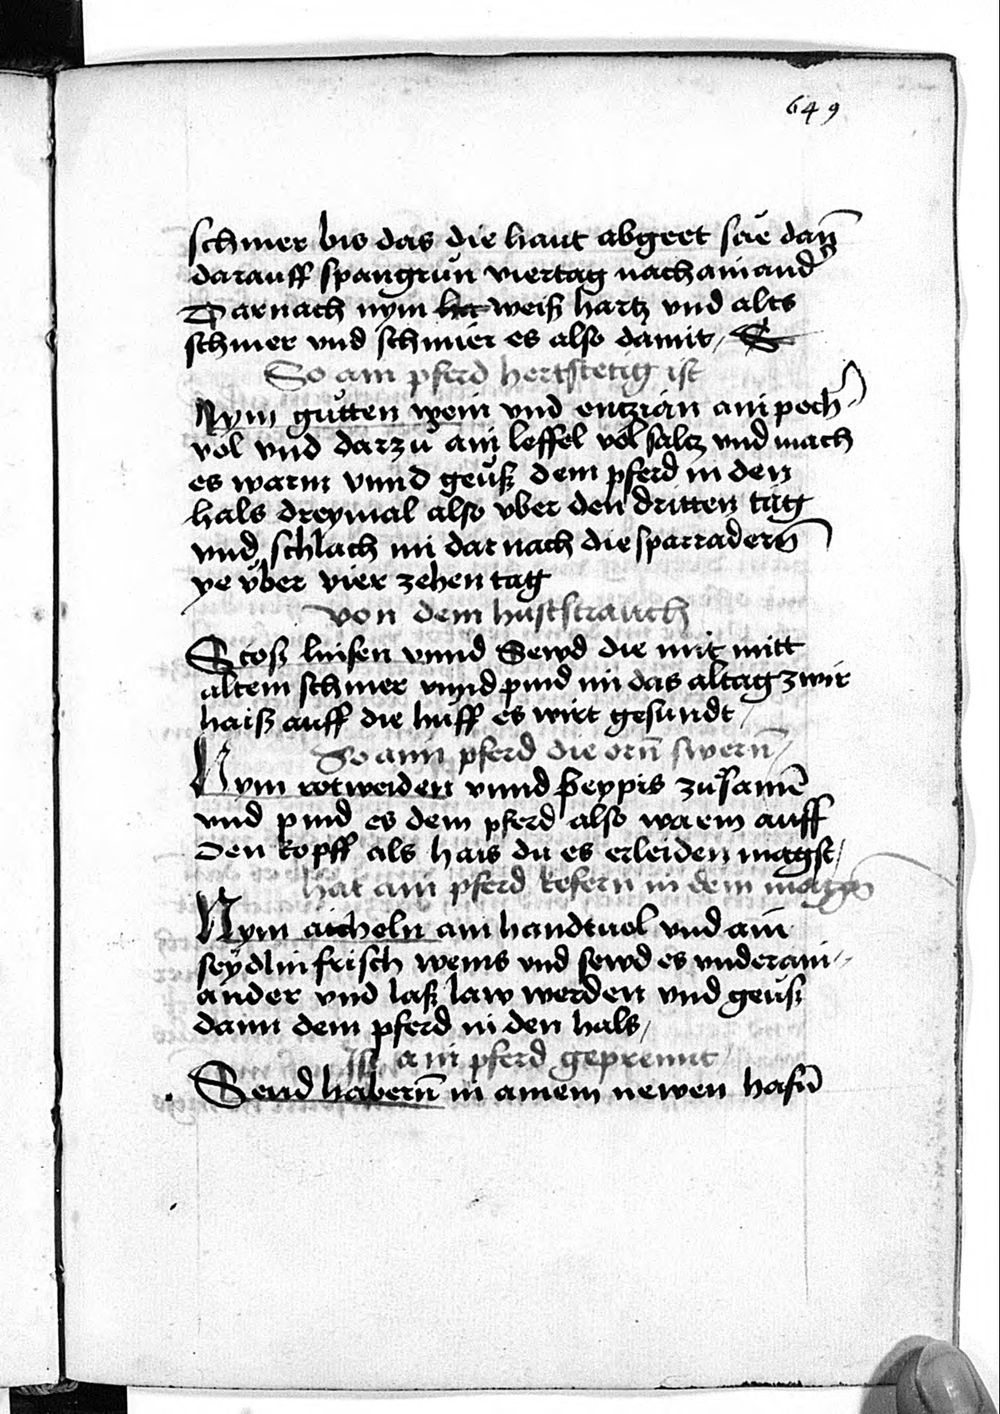 649
schmer bis das die haut abgeet säe dan̄
darauff spangrün viertag nach ainand
Darnach nym weiß hartz vnd alts
schmer vnd schmier es also damit /
So ain pferd hertstetig ist
Nym gütten wein vnd entzian ain pech
vol vnd darzu ain leffel vol saltz vnd mach
es warm vnnd geüß dem pferd in den
hals dreymal also vber den dritten tag
vnd schlach im darnach die sparradern̄
ye v̈ber vier zehen tag
von dem hustrauch
Stoß linsen vnnd Sewd die mit
altem schmer vnnd pind im das altag zwir
haiß auff die huff es wirt gesundt /
So ain pferd die orn̄ swern̄ /
Nym rotweiden vnnd peypis zusamē
vnd pind es dem pferd also warm auff
den kopff als hais du es erleiden magst /
hat ain pferd kefern in dem magen
Nym aicheln ain handtuol vnd ain
seydlin frisch weins vnd sewd es vnderain
ander vnd laß law werden vnd geüß
dann dem pferd in den hals /
Ist ain pferd geprennt /
Seud habern̄ in ainem newen hafn̄